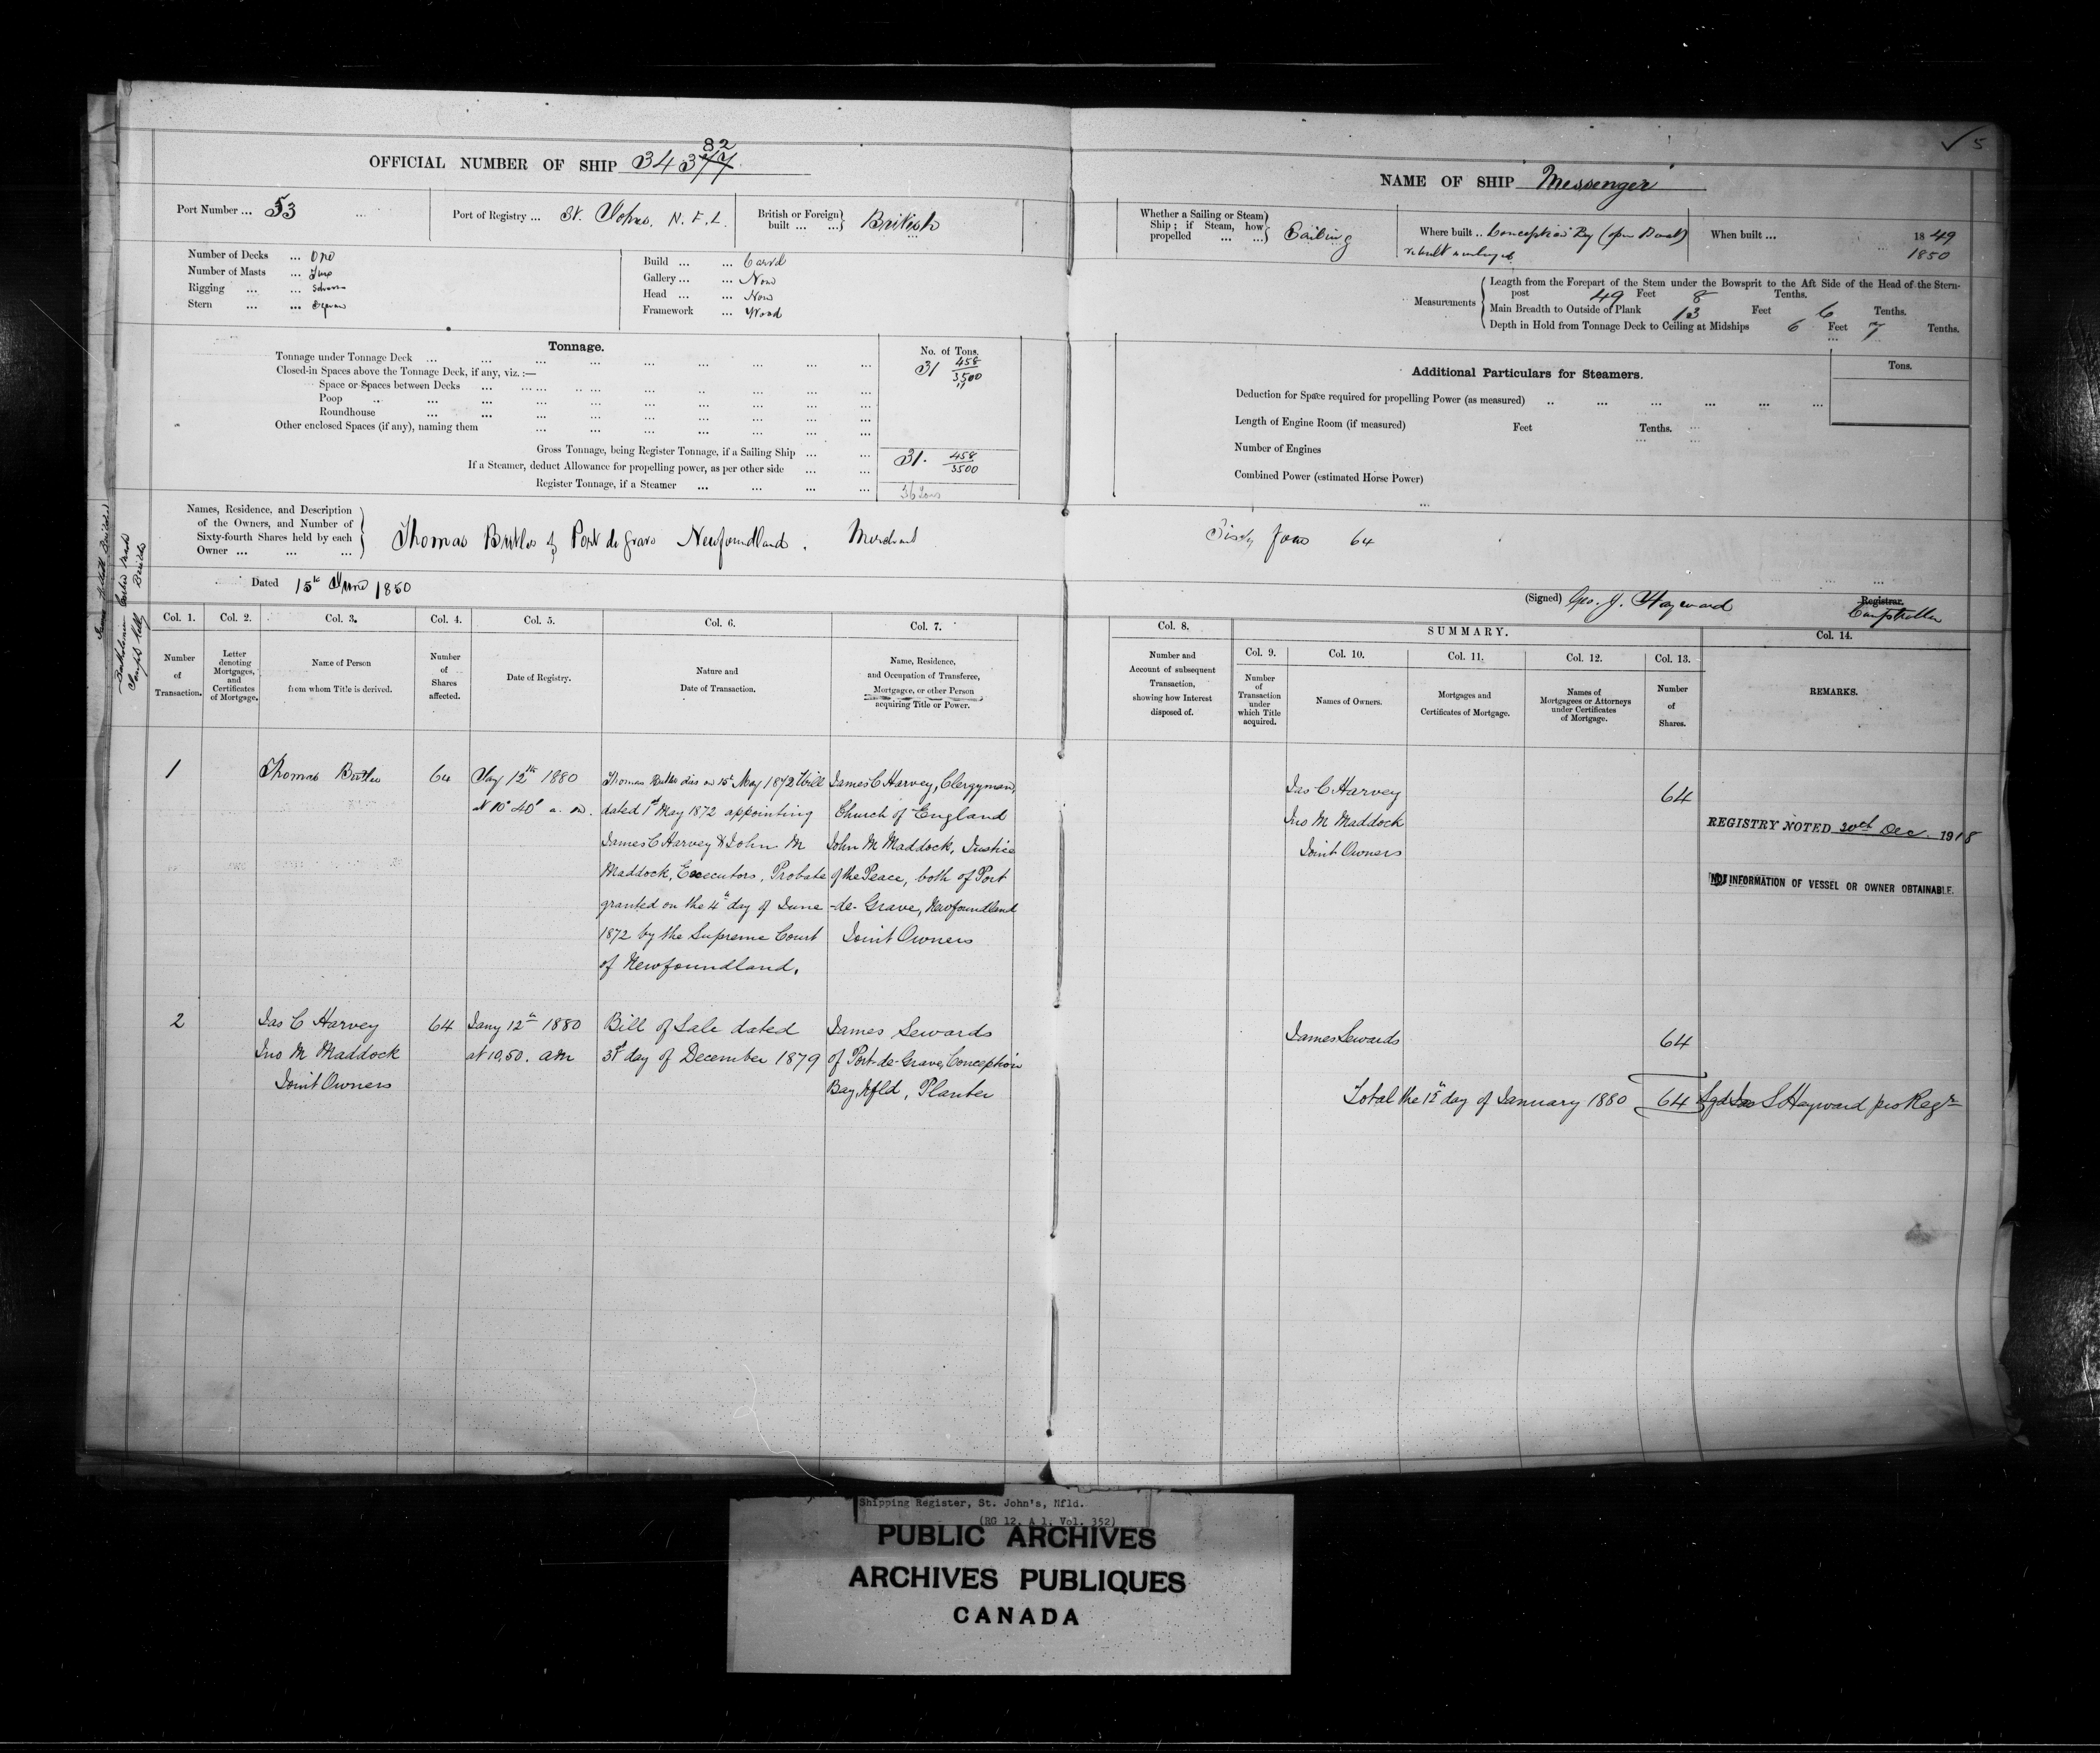 ✓ 5
82
OFFICIAL NUMBER OF SHIP 34377
Port Number ... 53
Port of Registry ... St. Johns. N.F.L.
British or Foreign built ... British
Number of Decks ... One
Number of Masts ... Two
Rigging ... Schooner
Stern ... Square
Build ... Carvel
Gallery ... None
Head ... None
Framework ... Wood
Tonnage.
No. of Tons.
Tonnage under Tonnage Deck ... 31 458/3500
Closed-in Spaces above the Tonnage Deck, if any, viz. :—
Space or Spaces between Decks ... "
Poop
Roundhouse
Other enclosed Spaces (if any), naming them
Gross Tonnage, being Register Tonnage, if a Sailing Ship ... 31. 458/3500
If a Steamer, deduct Allowance for propelling power, as per other side
Register Tonnage, if a Steamer ... 36 tons
NAME OF SHIP Messenger
Whether a Sailing or Steam Ship ; if Steam, how propelled ... Sailing
Where built .. Conception Bay (open Boat)
rebuilt & enlarged
When built ... 1849
1850
Measurements
Length from the Forepart of the Stem under the Bowsprit to the Aft Side of the Head of the Stern-
post 49 Feet 8 Tenths.
Main Breadth to Outside of Plank 13 Feet 6 Tenths.
Depth in Hold from Tonnage Deck to Ceiling at Midships 6 Feet 7 Tenths.
Additional Particulars for Steamers.
Tons.
Deduction for Space required for propelling Power (as measured)
Length of Engine Room (if measured) Feet Tenths.
Number of Engines
Combined Power (estimated Horse Power)
Names, Residence, and Description
of the Owners, and Number of
Sixty-fourth Shares held by each
Owner ...
Thomas Butler of Port de Grave Newfoundland. Merchant Sixty four 64
Dated 15th June 1850
(Signed) Geo. J. Hayward Registrar.
Comptroller
Col. 1. Number of Transaction.
Col. 2. Letter denoting Mortgages, and Certificates of Mortgage.
Col. 3. Name of Person from whom Title is derived.
Col. 4. Number of Shares affected.
Col. 5. Date of Registry.
Col. 6. Nature and Date of Transaction.
Col. 7. Name, Residence, and Occupation of Transferee, Mortgagee, or other Person acquiring Title or Power.
Col. 8. Number and Account of subsequent Transaction, showing how Interest disposed of.
SUMMARY.
Col. 9. Number of Transaction under which Title acquired.
Col. 10. Names of Owners.
Col. 11. Mortgages and Certificates of Mortgage.
Col. 12. Names of Mortgagees or Attorneys under Certificates of Mortgage.
Col. 13. Number of Shares.
Col. 14. REMARKS.
1
Thomas Butler
64
Jay 12th 1880
at 10° 40' a. m.
Thomas Butler dies on 15th May 1872 Will
dated 1st May 1872 appointing
James C Harvey & John M
Maddock, Executors, Probate
granted on the 4th day of June
1872 by the Supreme Court
of Newfoundland.
James C Harvey, Clergyman,
Church of England
John M Maddock, Justice
of the Peace, both of Port
-de-Grave, Newfoundland
Joint Owners
Jas C Harvey
Jno M Maddock
Joint Owners
64
REGISTRY NOTED 20th Dec. 1918
NO INFORMATION OF VESSEL OR OWNER OBTAINABLE.
2
Jas C Harvey
Jno M Maddock
Joint Owners
64
Jany 12th 1880
at 10.50. am
Bill of Sale dated
31st day of December 1879
James Sewards
of Port-de-Grave, Conception
Bay, Nfld, Planter
James Sewards
64
Total the 12th day of January 1880 64 Sgd Jas S Hayward pro Regr
Shipping Register, St. John's, Nfld.
(RG 12, A 1, Vol. 352)
PUBLIC ARCHIVES
ARCHIVES PUBLIQUES
CANADA